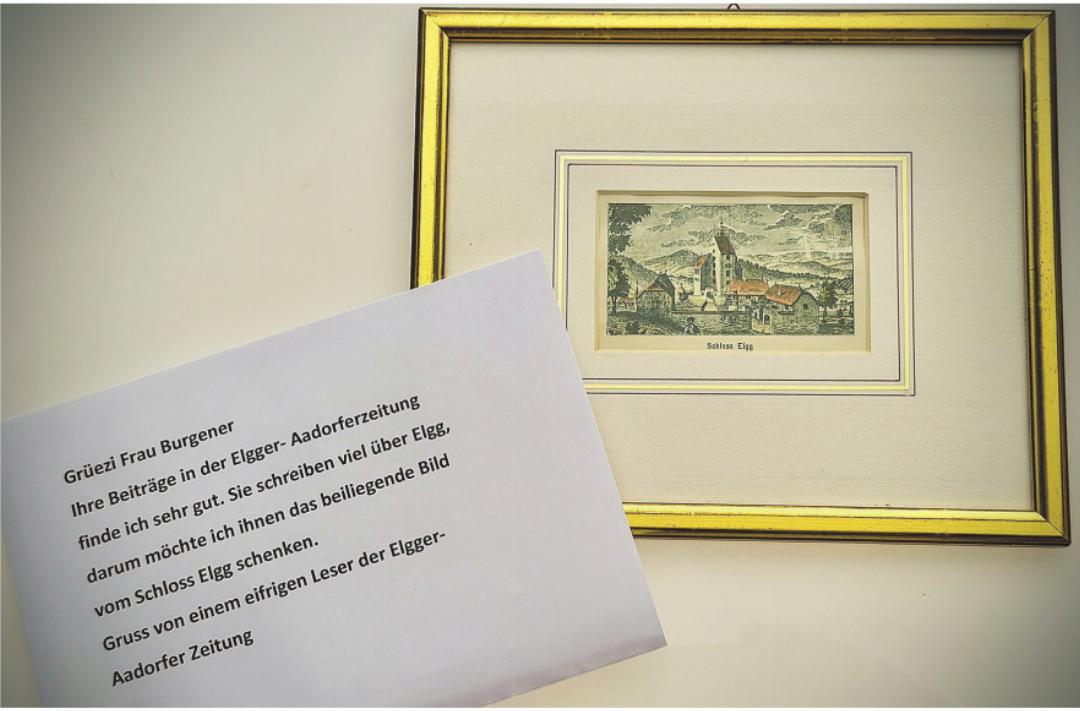 Schloss Elgg
Grüezi Frau Burgener
Ihre Beiträge in der Elgger- Aadorferzeitung
finde ich sehr gut. Sie schreiben viel über Elgg,
darum möchte ich ihnen das beiliegende Bild
vom Schloss Elgg schenken.
Gruss von einem eifrigen Leser der Elgger-
Aadorfer Zeitung